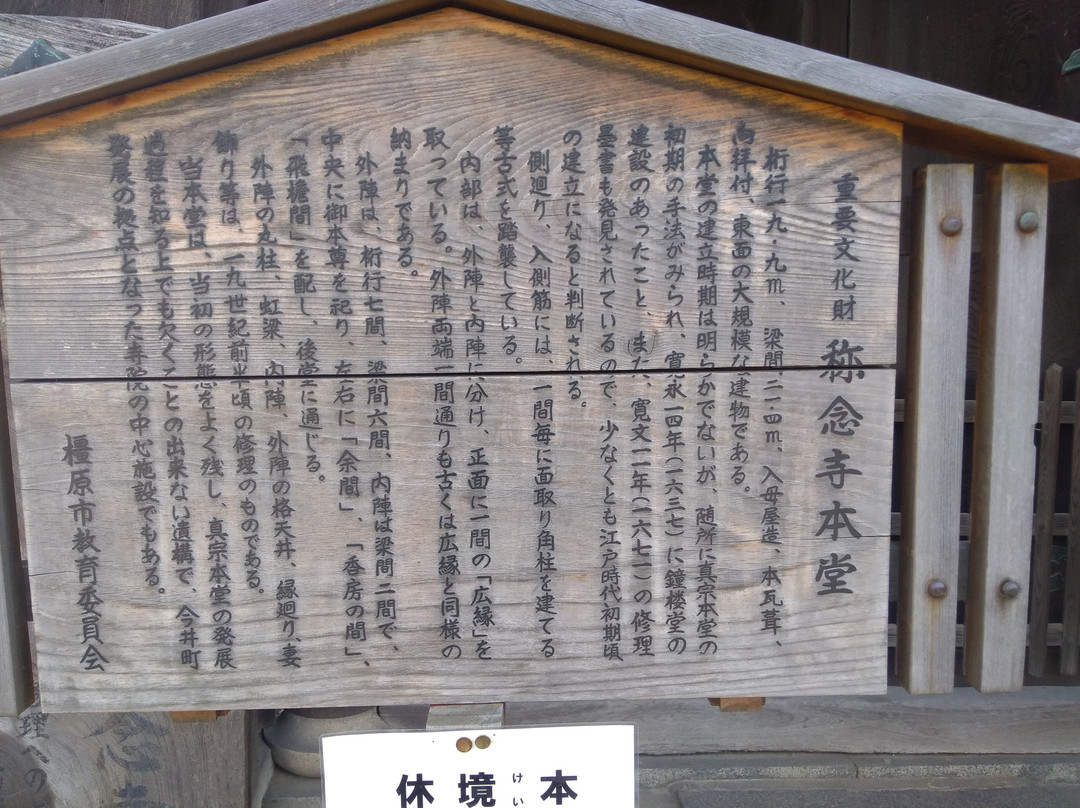 重要文化財 称念寺本堂
桁行一九・九m、梁間二一・四m、入母屋造、本瓦葺、
向拝付、東面の大規模な建物である。
本堂の建立時期は明らかでないが、随所に真宗本堂の
初期の手法がみられ、寛永一四年(一六三七)に鐘楼堂の
建設のあったこと、また、寛文一一年(一六七一)の修理
墨書も発見されているので、少なくとも江戸時代初期頃
の建立になると判断される。
側廻り、入側筋には、一間毎に面取り角柱を建てる
等古式を踏襲している。
内部は、外陣と内陣に分け、正面に一間の「広縁」を
取っている。外陣両端一間通りも古くは広縁と同様の
納まりである。
外陣は、桁行七間、梁間六間、内陣は梁間二間で、
中央に御本尊を祀り、左右に「余間」、「香房の間」、
「飛檐間」を配し、後堂に通じる。
外陣の丸柱、虹梁、内陣、外陣の格天井、縁廻り、妻
飾り等は、一九世紀前半頃の修理のものである。
当本堂は、当初の形態をよく残し、真宗本堂の発展
過程を知る上でも欠くことの出来ない遺構で、今井町
発展の拠点となった寺院の中心施設でもある。
橿原市教育委員会
本
境
けい
休